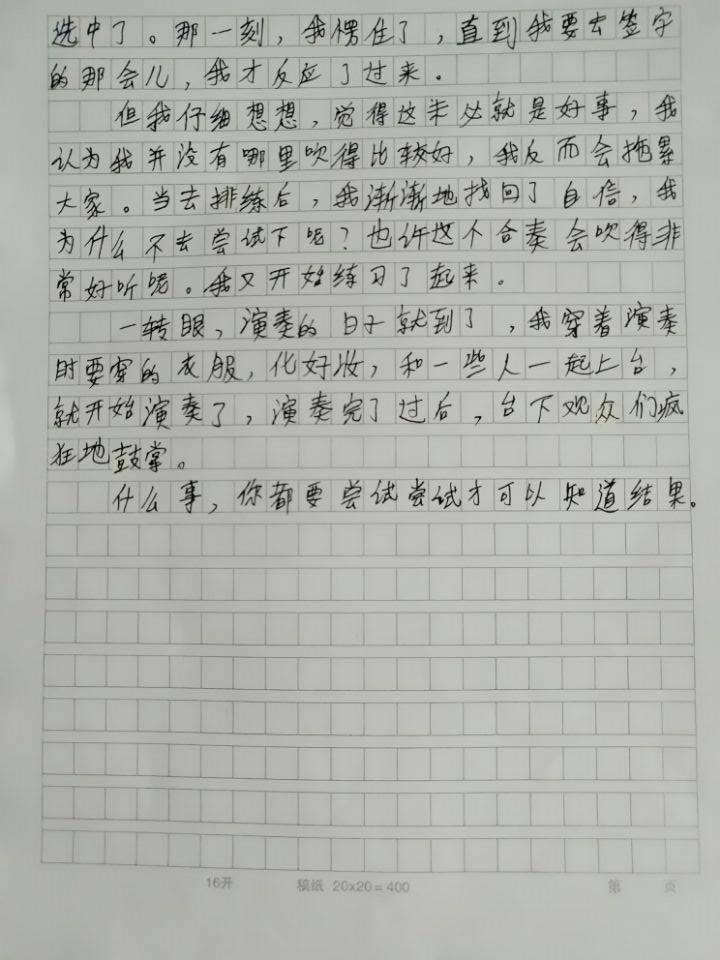 选中了。那一刻，我愣住了，直到我要去签字
的那会儿，我才反应了过来。
但我仔细想想，觉得这未必就是好事，我
认为我并没有哪里吹得比较好，我反而会拖累
大家。当去排练后，我渐渐地找回了自信，我
为什么不去尝试下呢？也许这个合奏会吹得非
常好听呢。我又开始练习了起来。
一转眼，演奏的日子就到了，我穿着演奏
时要穿的衣服，化好妆，和一些人一起上台，
就开始演奏了，演奏完了过后，台下观众们疯
狂地鼓掌。
什么事，你都要尝试尝试才可以知道结果。
16开 稿纸 20x20=400 第 页